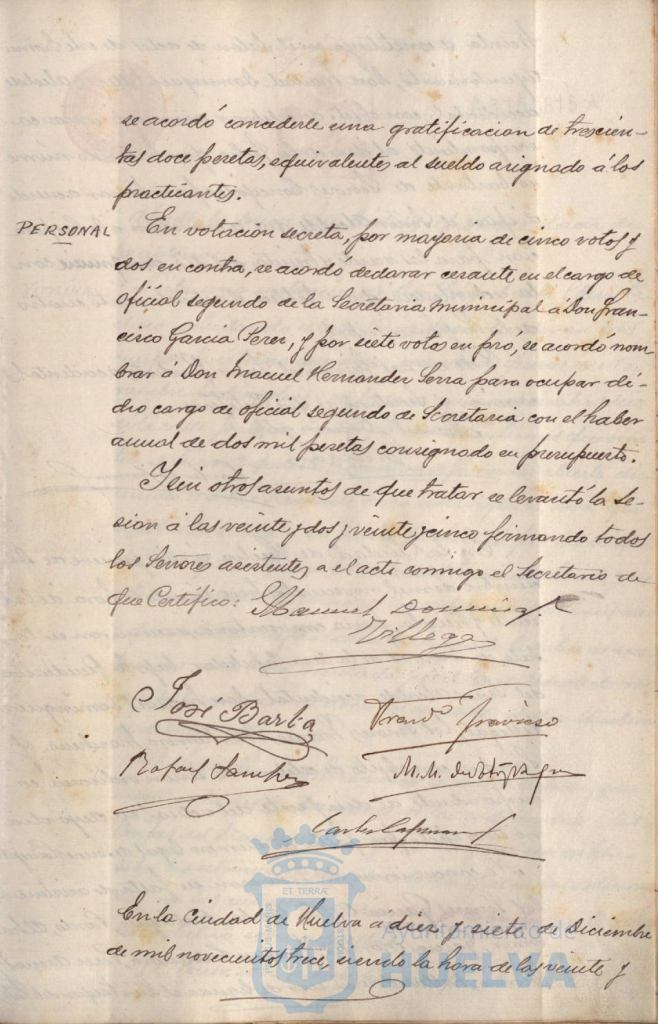 se acordó concederle una gratificacion de trescien-
tas doce pesetas, equivalentes al sueldo asignado á los
practicantes.
PERSONAL
En votación secreta, por mayoria de cinco votos y
dos en contra, se acordó declarar cesante en el cargo de
oficial segundo de la Secretaria municipal á Don Fran-
cisco García Perez, y por siete votos en pró, se acordó nom-
brar á Don Manuel Hernandez Serra para ocupar di-
cho cargo de oficial segundo de Secretaria con el haber
anual de dos mil pesetas consignado en presupuesto.
Y sin otros asuntos de que tratar se levantó la se-
sion á las veinte y dos y veinte y cinco firmando todos
los Señores asistentes a el acto conmigo el Secretario de
que Certifico: Manuel Doming
Villegas
José Barba
Rafael Sanchez
M.M.
Carlos
ET TERRÆ
En la Ciudad de Huelva á diez y siete de Diciembre
de mil novecientos trece, siendo la hora de las veinte y
Ayuntamiento de
HUELVA